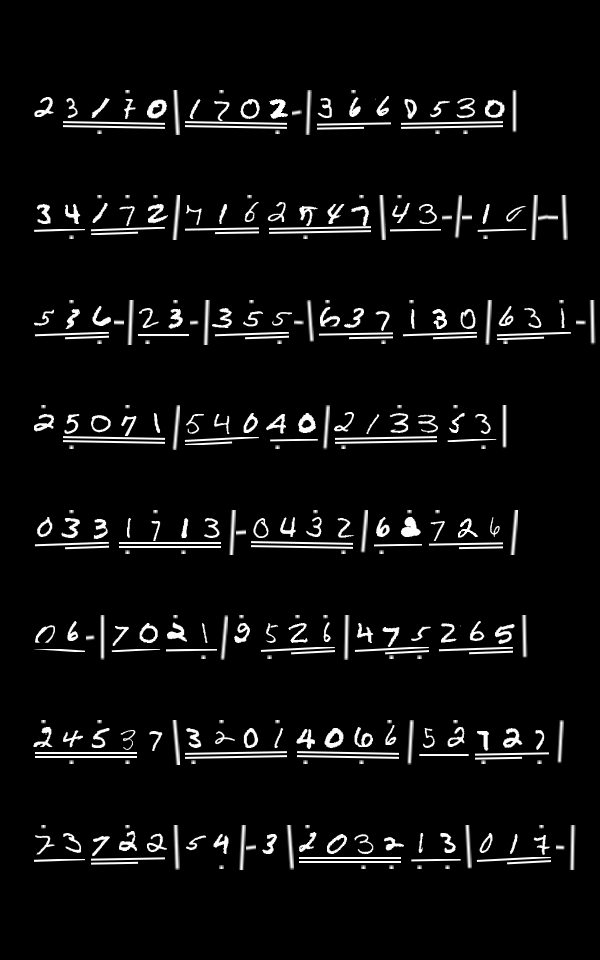 2 3 1 7 0 | 1 7 0 2 - | 3 6 6 0 5 3 0 |
3 4 1 7 2 | 7 1 6 2 5 4 7 | 4 3 - | - 1 0 | - |
5 3 6 - | 2 3 - | 3 5 5 - | 6 3 7 1 3 0 | 6 3 1 - |
2 5 0 7 1 | 5 4 0 4 0 | 2 1 3 3 5 3 |
0 3 3 1 7 1 3 | - 0 4 3 2 | 6 2 7 2 6 |
0 6 - | 7 0 2 1 | 9 5 2 6 | 4 7 5 2 6 5 |
2 4 5 3 7 | 3 2 0 1 4 0 6 6 | 5 2 7 2 7 |
7 3 7 2 2 | 5 4 | - 3 | 2 0 3 2 1 3 | 0 1 7 - |